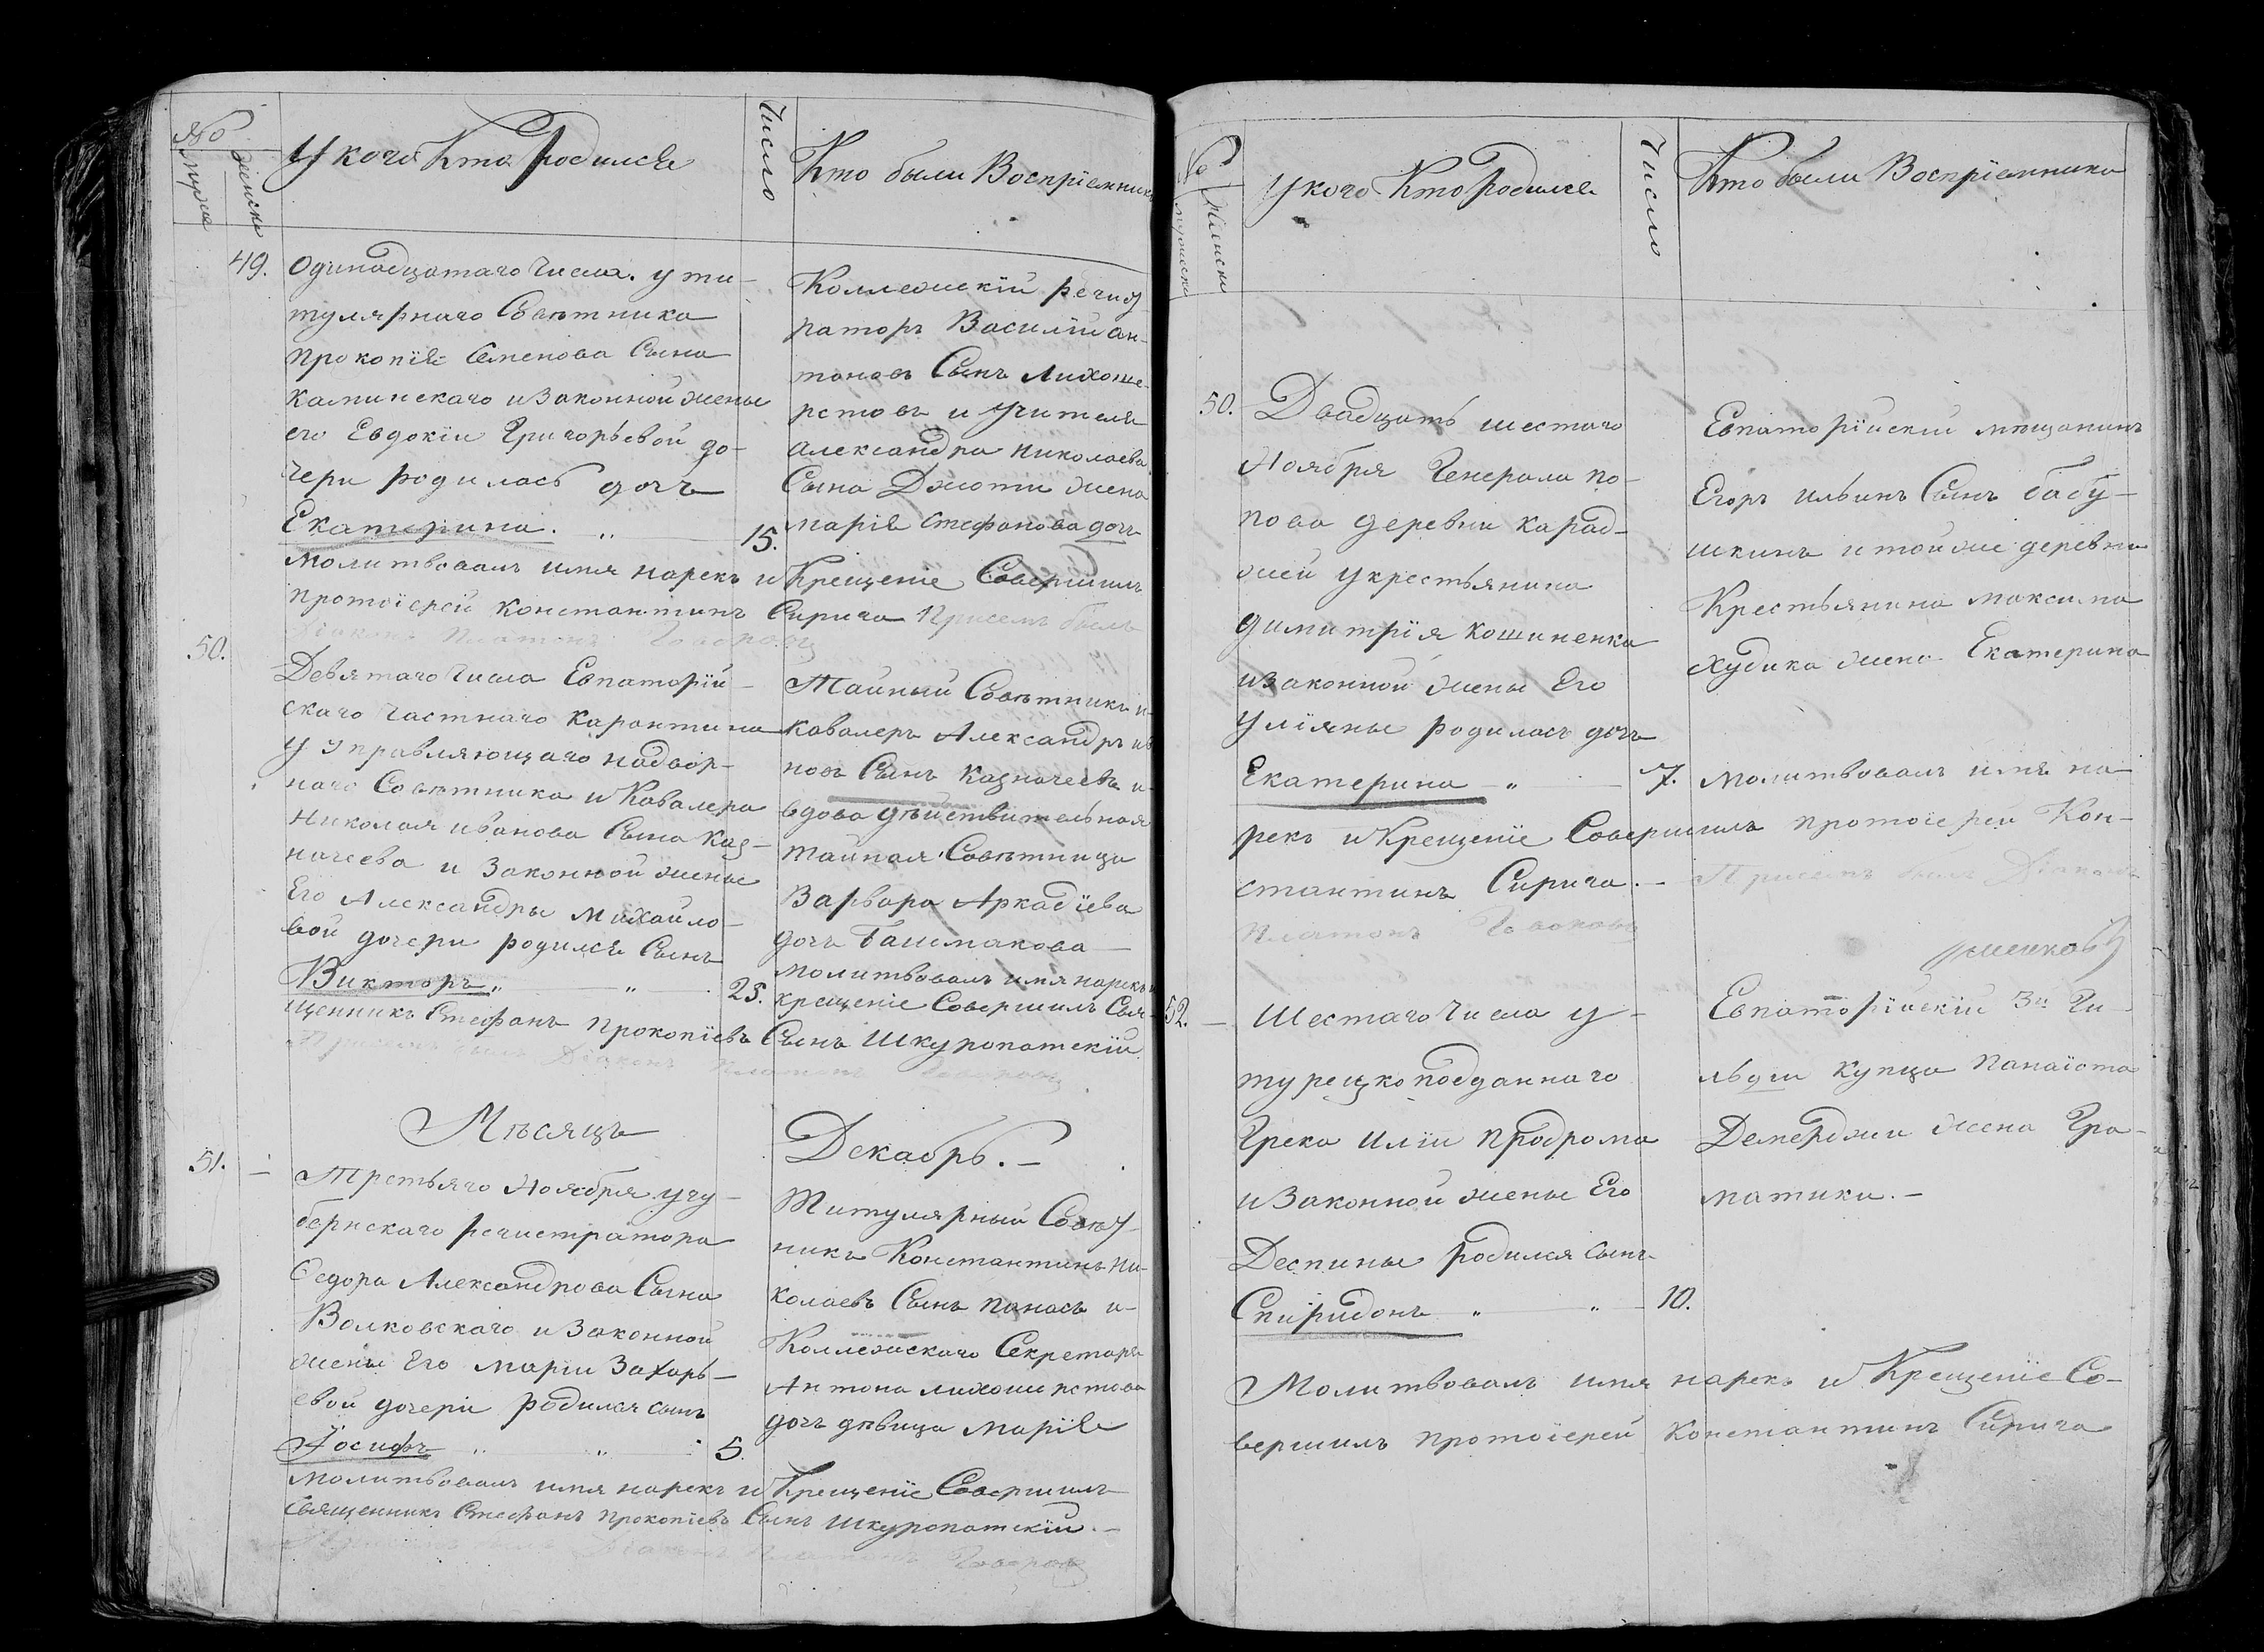 №
мужск
женски
У кого Кто Родился
Число
Кто были Воспріемники
49. Одинадцатаго Числа. у ти-
тулярнаго Совѣтника
Прокопія Семенова Сына
Каминскаго и Законной жены
его Евдокіи Григорьевой до-
чери родилась дочь
Екатерина. „ 15.
Коллежскій регист
раторъ Василій Ан-
тоновъ Сынъ Лихоше-
рстовъ и учителя
Александра Николаева
Сына Джоти жена
Марія Стефанова дочь
Молитвовалъ имя нарекъ и Крещеніе Совершилъ
протоіерей Константинъ Сирича Присемъ былъ
Діаконъ Платонъ
50. Девятаго Числа Евпаторій-
скаго Частнаго Карантина
у управляющаго надвор-
наго Совѣтника и Кавалера
Николая Иванова Сына Каз-
начеева и Законной жены
Его Александры Михайло-
вой дочери родился Сынъ
Викторъ „ „ 25.
Тайный Совѣтникъ и
Кавалеръ Александръ Ива
новъ Сынъ Казначеевъ и
вдова дѣйствительная
тайная Совѣтница
Варвара Аркадіева
дочь Башмакова
Молитвовалъ имя нарекъ и
крещеніе Совершилъ Свя-
щенникъ Стефанъ Прокопіевъ Сынъ Шкуропатскій
Присемъ былъ Діаконъ Платонъ
Мѣсяцъ Декабрь. –
51. – Третьяго Ноября у гу-
бернскаго регистратора
Федора Александрова Сына
Волковскаго и Законной
жены Его Маріи Захарь-
евой дочери родился сынъ
Іосифъ „ „ 5.
Титулярный Совѣт-
никъ Константинъ Ни-
колаевъ Сынъ Панасъ и-
Коллежскаго Секретаря
Антона Лихошерстова
дочь дѣвица Марія
Молитвовалъ имя нарекъ и Крещеніе Совершилъ
Священникъ Стефанъ Прокопіевъ Сынъ Шкуропатскій. –
Присемъ былъ Діаконъ Платонъ
№
мужски
женски
У кого Кто родился
Число
Кто были Воспріемники
50. Двадцать шестаго
Ноября Генерала По-
пова деревни Карад-
жей у крестьянина
Димитрія Кошиненка
и Законной жены Его
Уліяны родилась дочь
Екатерина – „ 7.
Евпаторійский мѣщанинъ
Егоръ Ильинъ Сынъ Бабу-
шкинъ и той же деревни
Крестьянина Максима
Худика жена Екатерина
Молитвовалъ имя на-
рекъ и Крещеніе Совершилъ протоіерей Кон-
стантинъ Сирича. – Присемъ былъ Діаконъ
Платонъ
52. – Шестаго Числа у-
турецкоподданнаго
Грека Иліи Продрома
и Законной жены Его
Деспины родился сынъ
Спиридонъ „ „ 10.
Евпаторійскій 3й Ги-
льдіи Купца Панаіота
Демерджи жена Гра-
матики. –
Молитвовалъ имя нарекъ и Крещеніе Со-
вершилъ протоіерей Константинъ Сирича